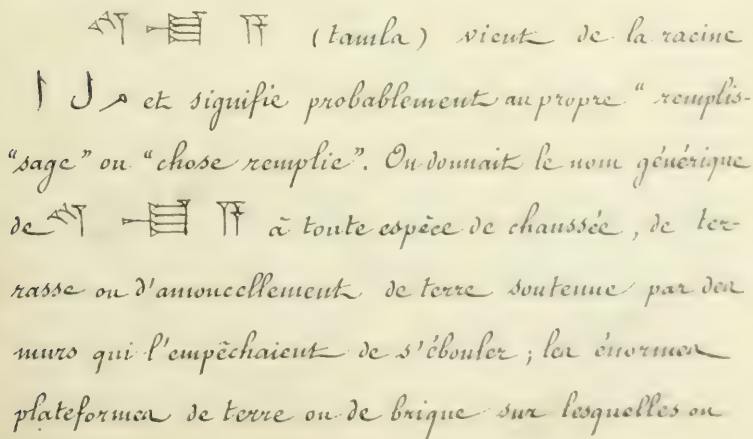 𒌓 𒆷 𒀀 (tamla) vient de la racine
م ل ا et signifie probablement au propre “remplis-
“sage” ou “chose remplie”. On donnait le nom générique
de 𒌓 𒆷 𒀀 à toute espèce de chaussée, de ter-
rasse ou d'amoncellement de terre soutenue par des
murs qui l'empêchaient de s'ébouler; les énormes
plateformes de terre ou de brique sur lesquelles on